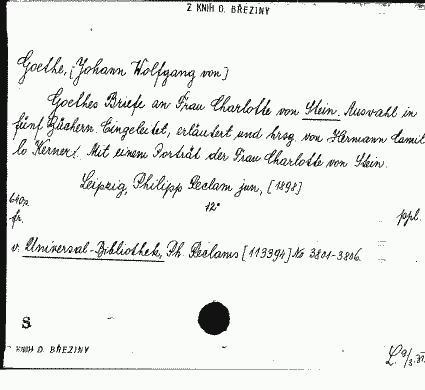 Z KNIH O. BŘEZINY
Goethe, [Johann Wolfgang von]
Goethes Briefe an Frau Charlotte von Stein. Auswahl in
fünf Büchern. Eingeleitet, erläutert und hrsg. von Hermann Camil-
lo Kerner. Mit einem Porträt der Frau Charlotte von Stein.
Leipzig, Philipp Reclam jun, [1898]
12°
fr.
ppl.
v. Universal-Bibliothek, Ph. Reclams [113394] No 3801-3806.
S
KNIH O. BŘEZINY